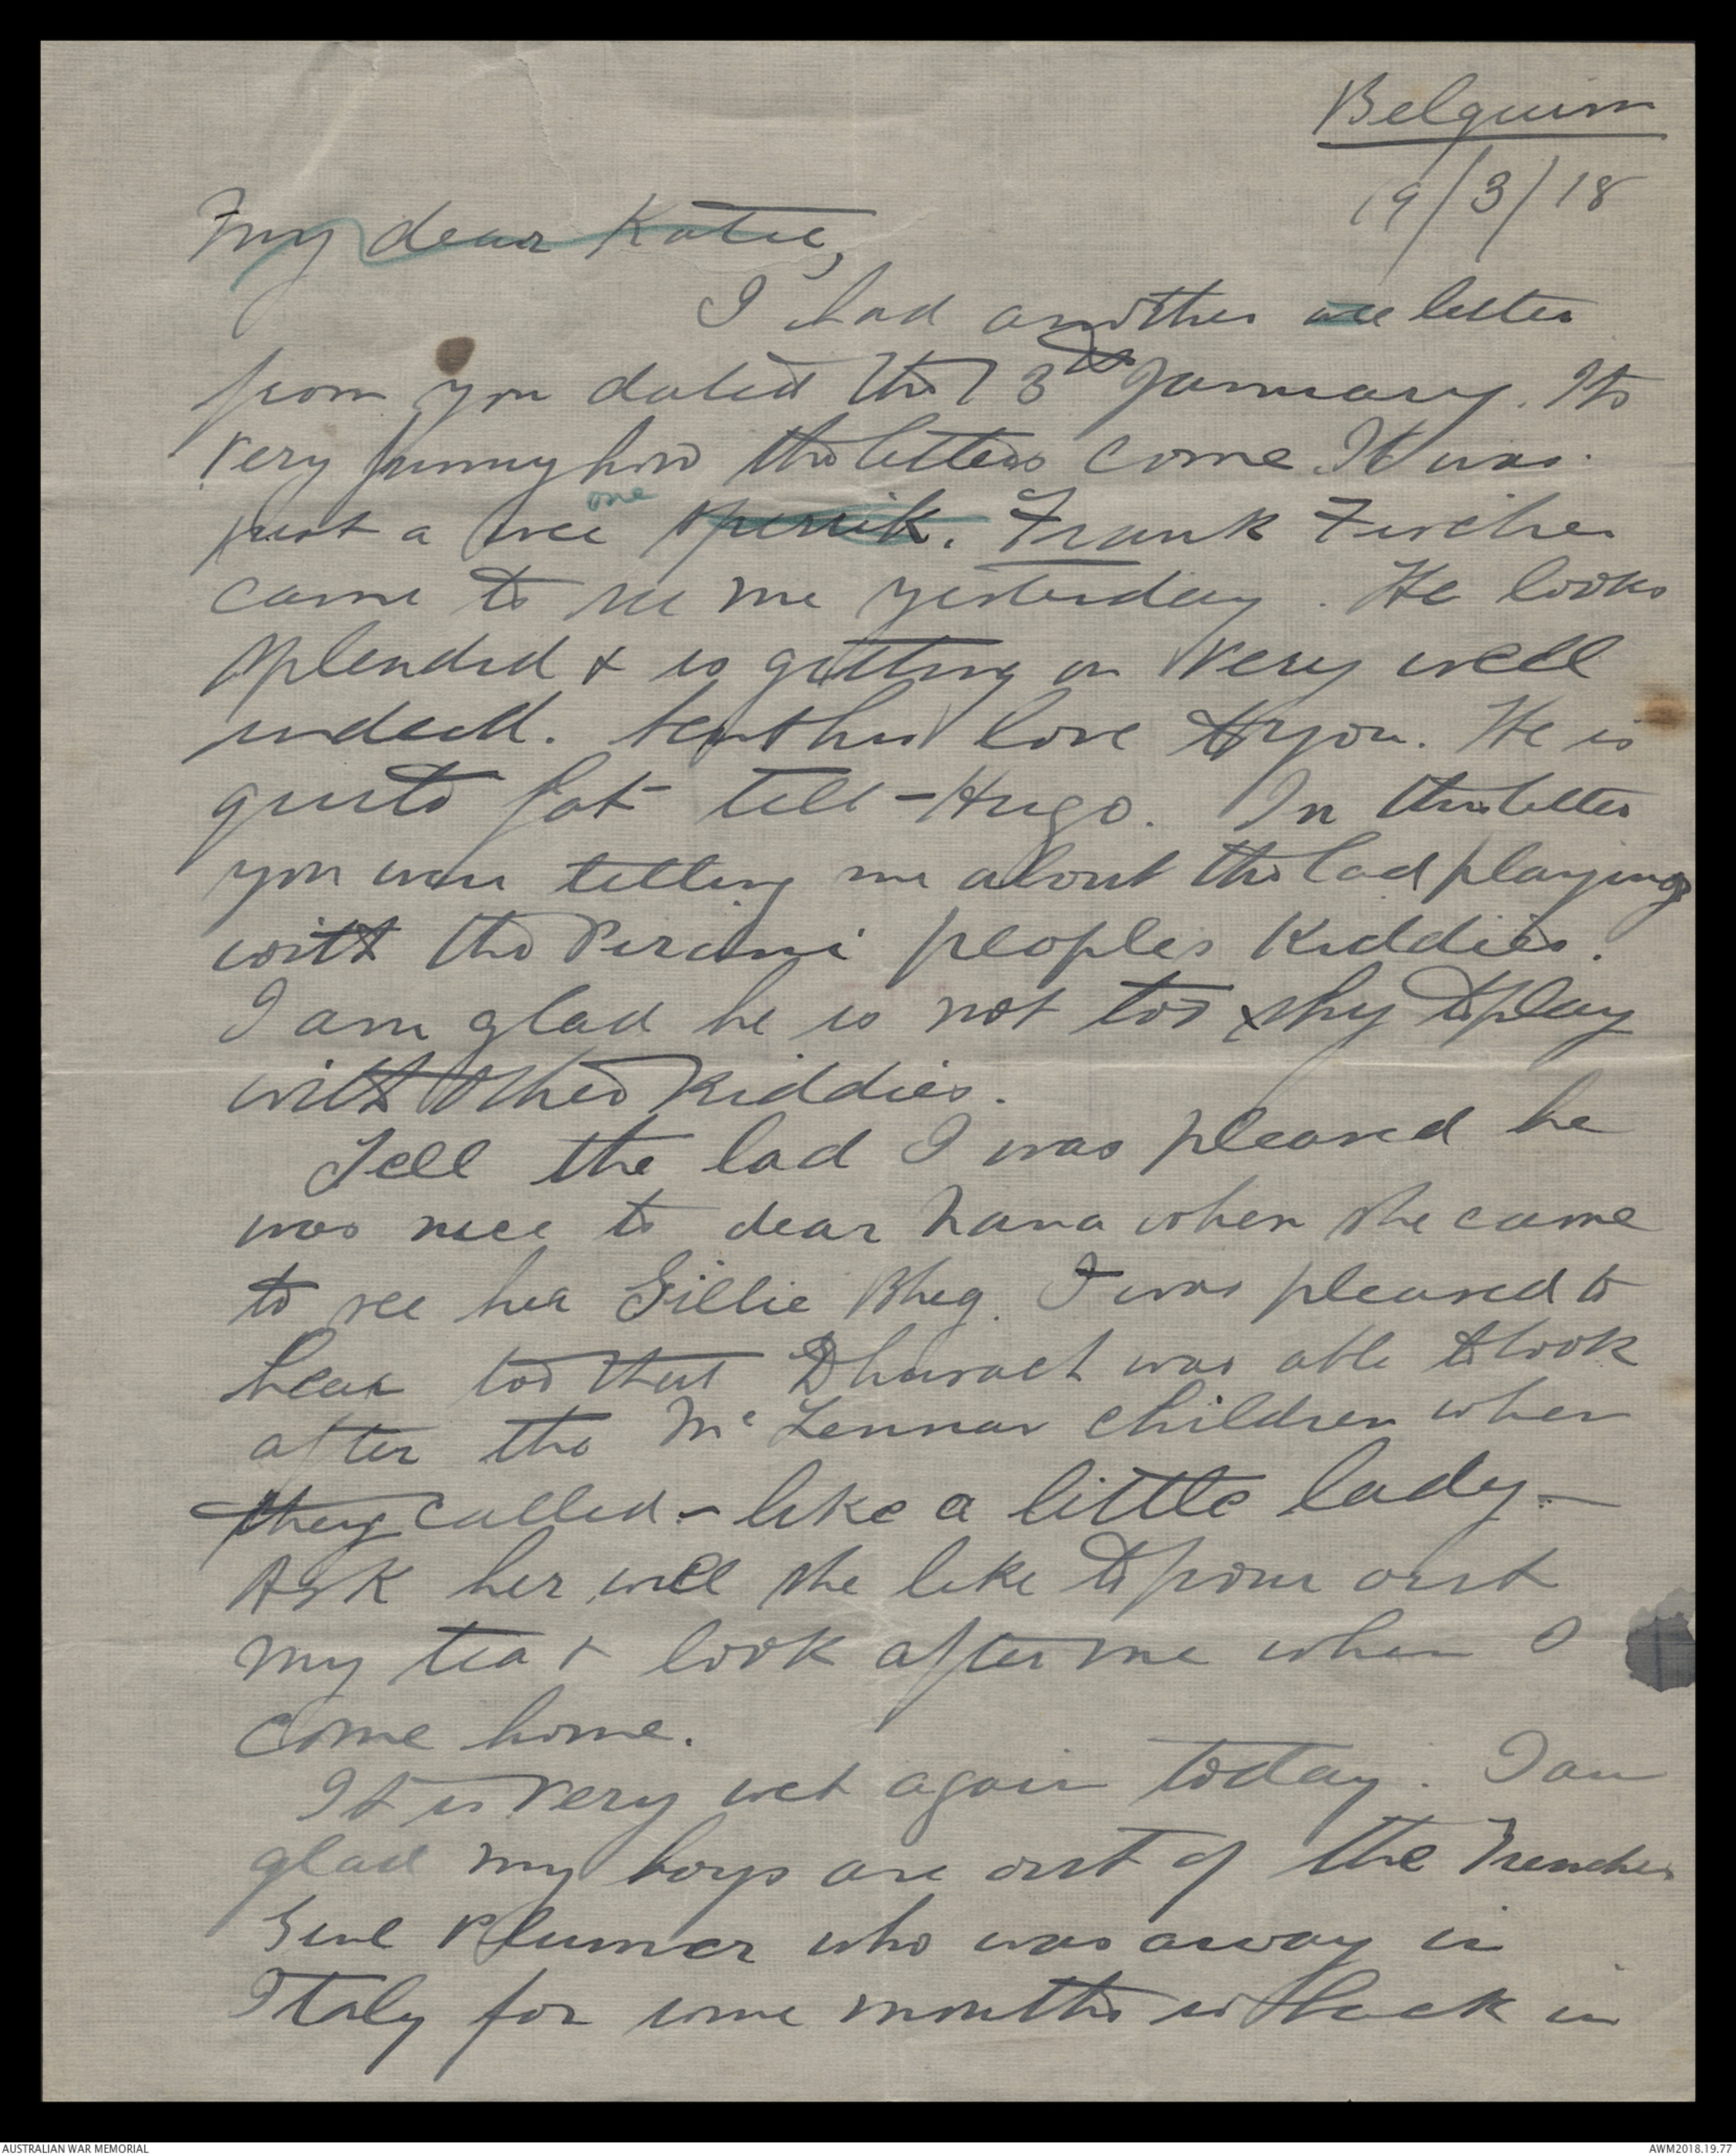 Belguim
19/3/18
My dear Katie,
I had another wee letter
from you dated the 3rd January. Its
very funny how the letters come It was
just a wee one spenik. Frank Fischer
came to see me yesterday. He looks
splendid & is getting on very well
indeed. Sent his love to you. He is
quite fat tell Hugo. In the letter
you were telling me about the lad playing
with the people's kiddies.
I am glad he is not too shy to play
with other kiddies.
Tell the lad I was pleased he
was nice to dear Nana when she came
to see her Gillie Bheg. I was pleased to
hear too that was able to look
after the McLennan children when
they called - like a little lady -
Ask her will she like to pour out
my tea & look after me when I
come home.
It is very wet again today. I am
glad my boys are out of the trenches
Genl Plumer who was away in
Italy for some months is back in
AUSTRALIAN WAR MEMORIAL
AWM2018.19.77